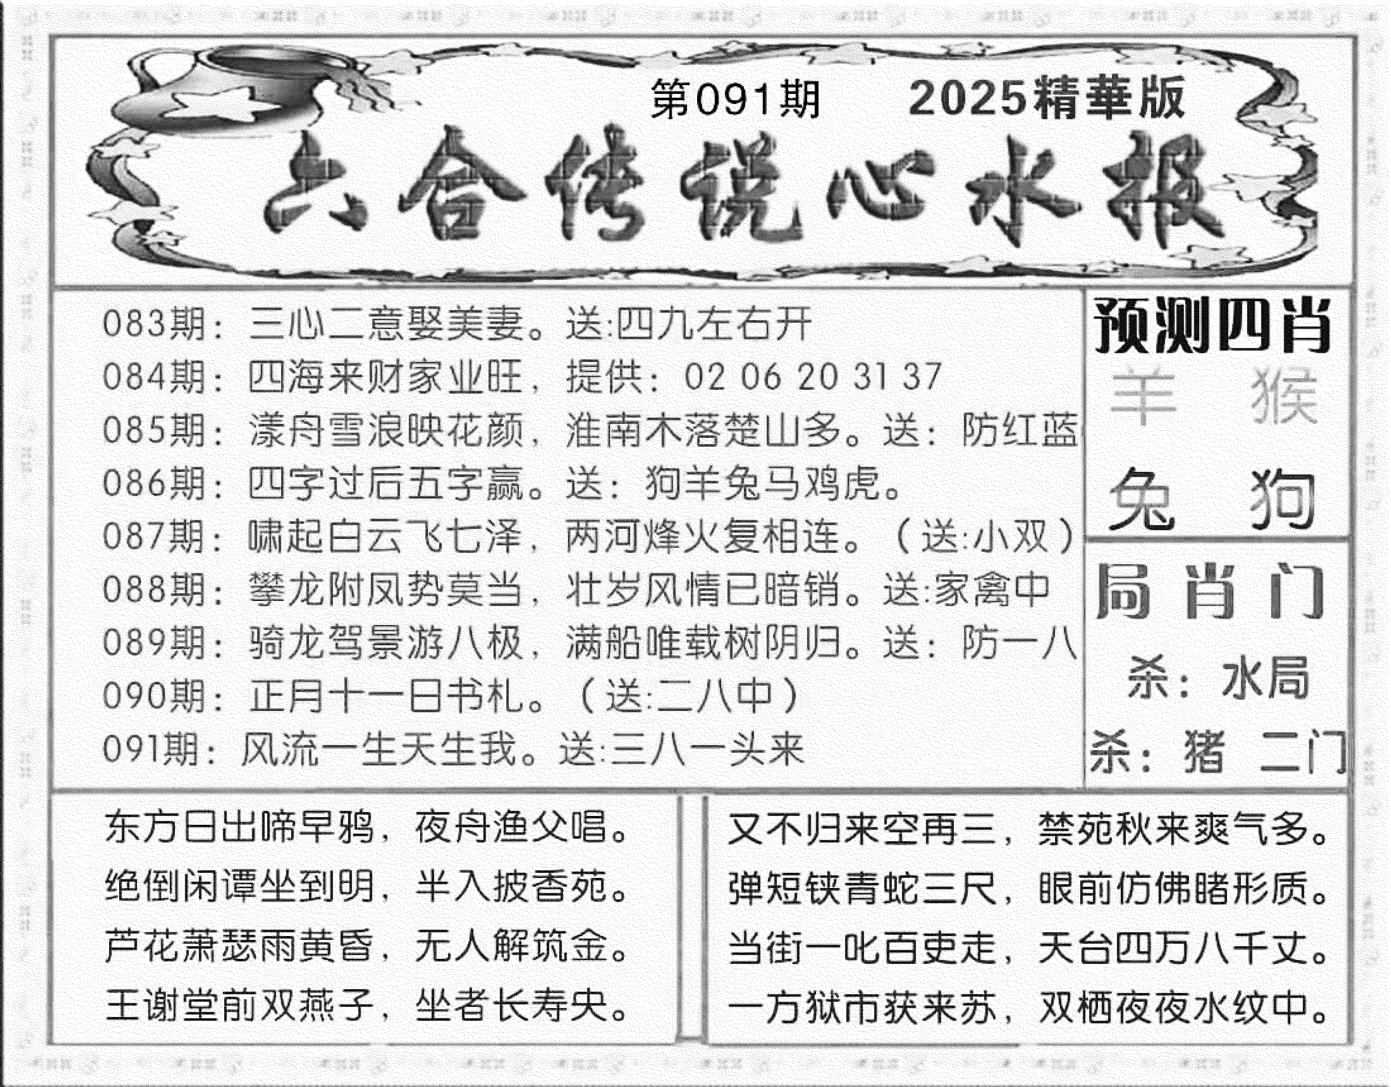 第091期 2025精華版
六合传说心水报
083期：三心二意娶美妻。送:四九左右开
084期：四海来财家业旺，提供：02 06 20 31 37
085期：漾舟雪浪映花颜，淮南木落楚山多。送：防红蓝
086期：四字过后五字赢。送：狗羊兔马鸡虎。
087期：啸起白云飞七泽，两河烽火复相连。（送:小双）
088期：攀龙附凤势莫当，壮岁风情已暗销。送:家禽中
089期：骑龙驾景游八极，满船唯载树阴归。送：防一八
090期：正月十一日书札。（送:二八中）
091期：风流一生天生我。送:三八一头来
预测四肖
羊 猴
兔 狗
局肖门
杀：水局
杀：猪 二门
东方日出啼早鸦，夜舟渔父唱。
绝倒闲谭坐到明，半入披香苑。
芦花萧瑟雨黄昏，无人解筑金。
王谢堂前双燕子，坐者长寿央。
又不归来空再三，禁苑秋来爽气多。
弹短铗青蛇三尺，眼前仿佛睹形质。
当街一叱百吏走，天台四万八千丈。
一方狱市获来苏，双栖夜夜水纹中。